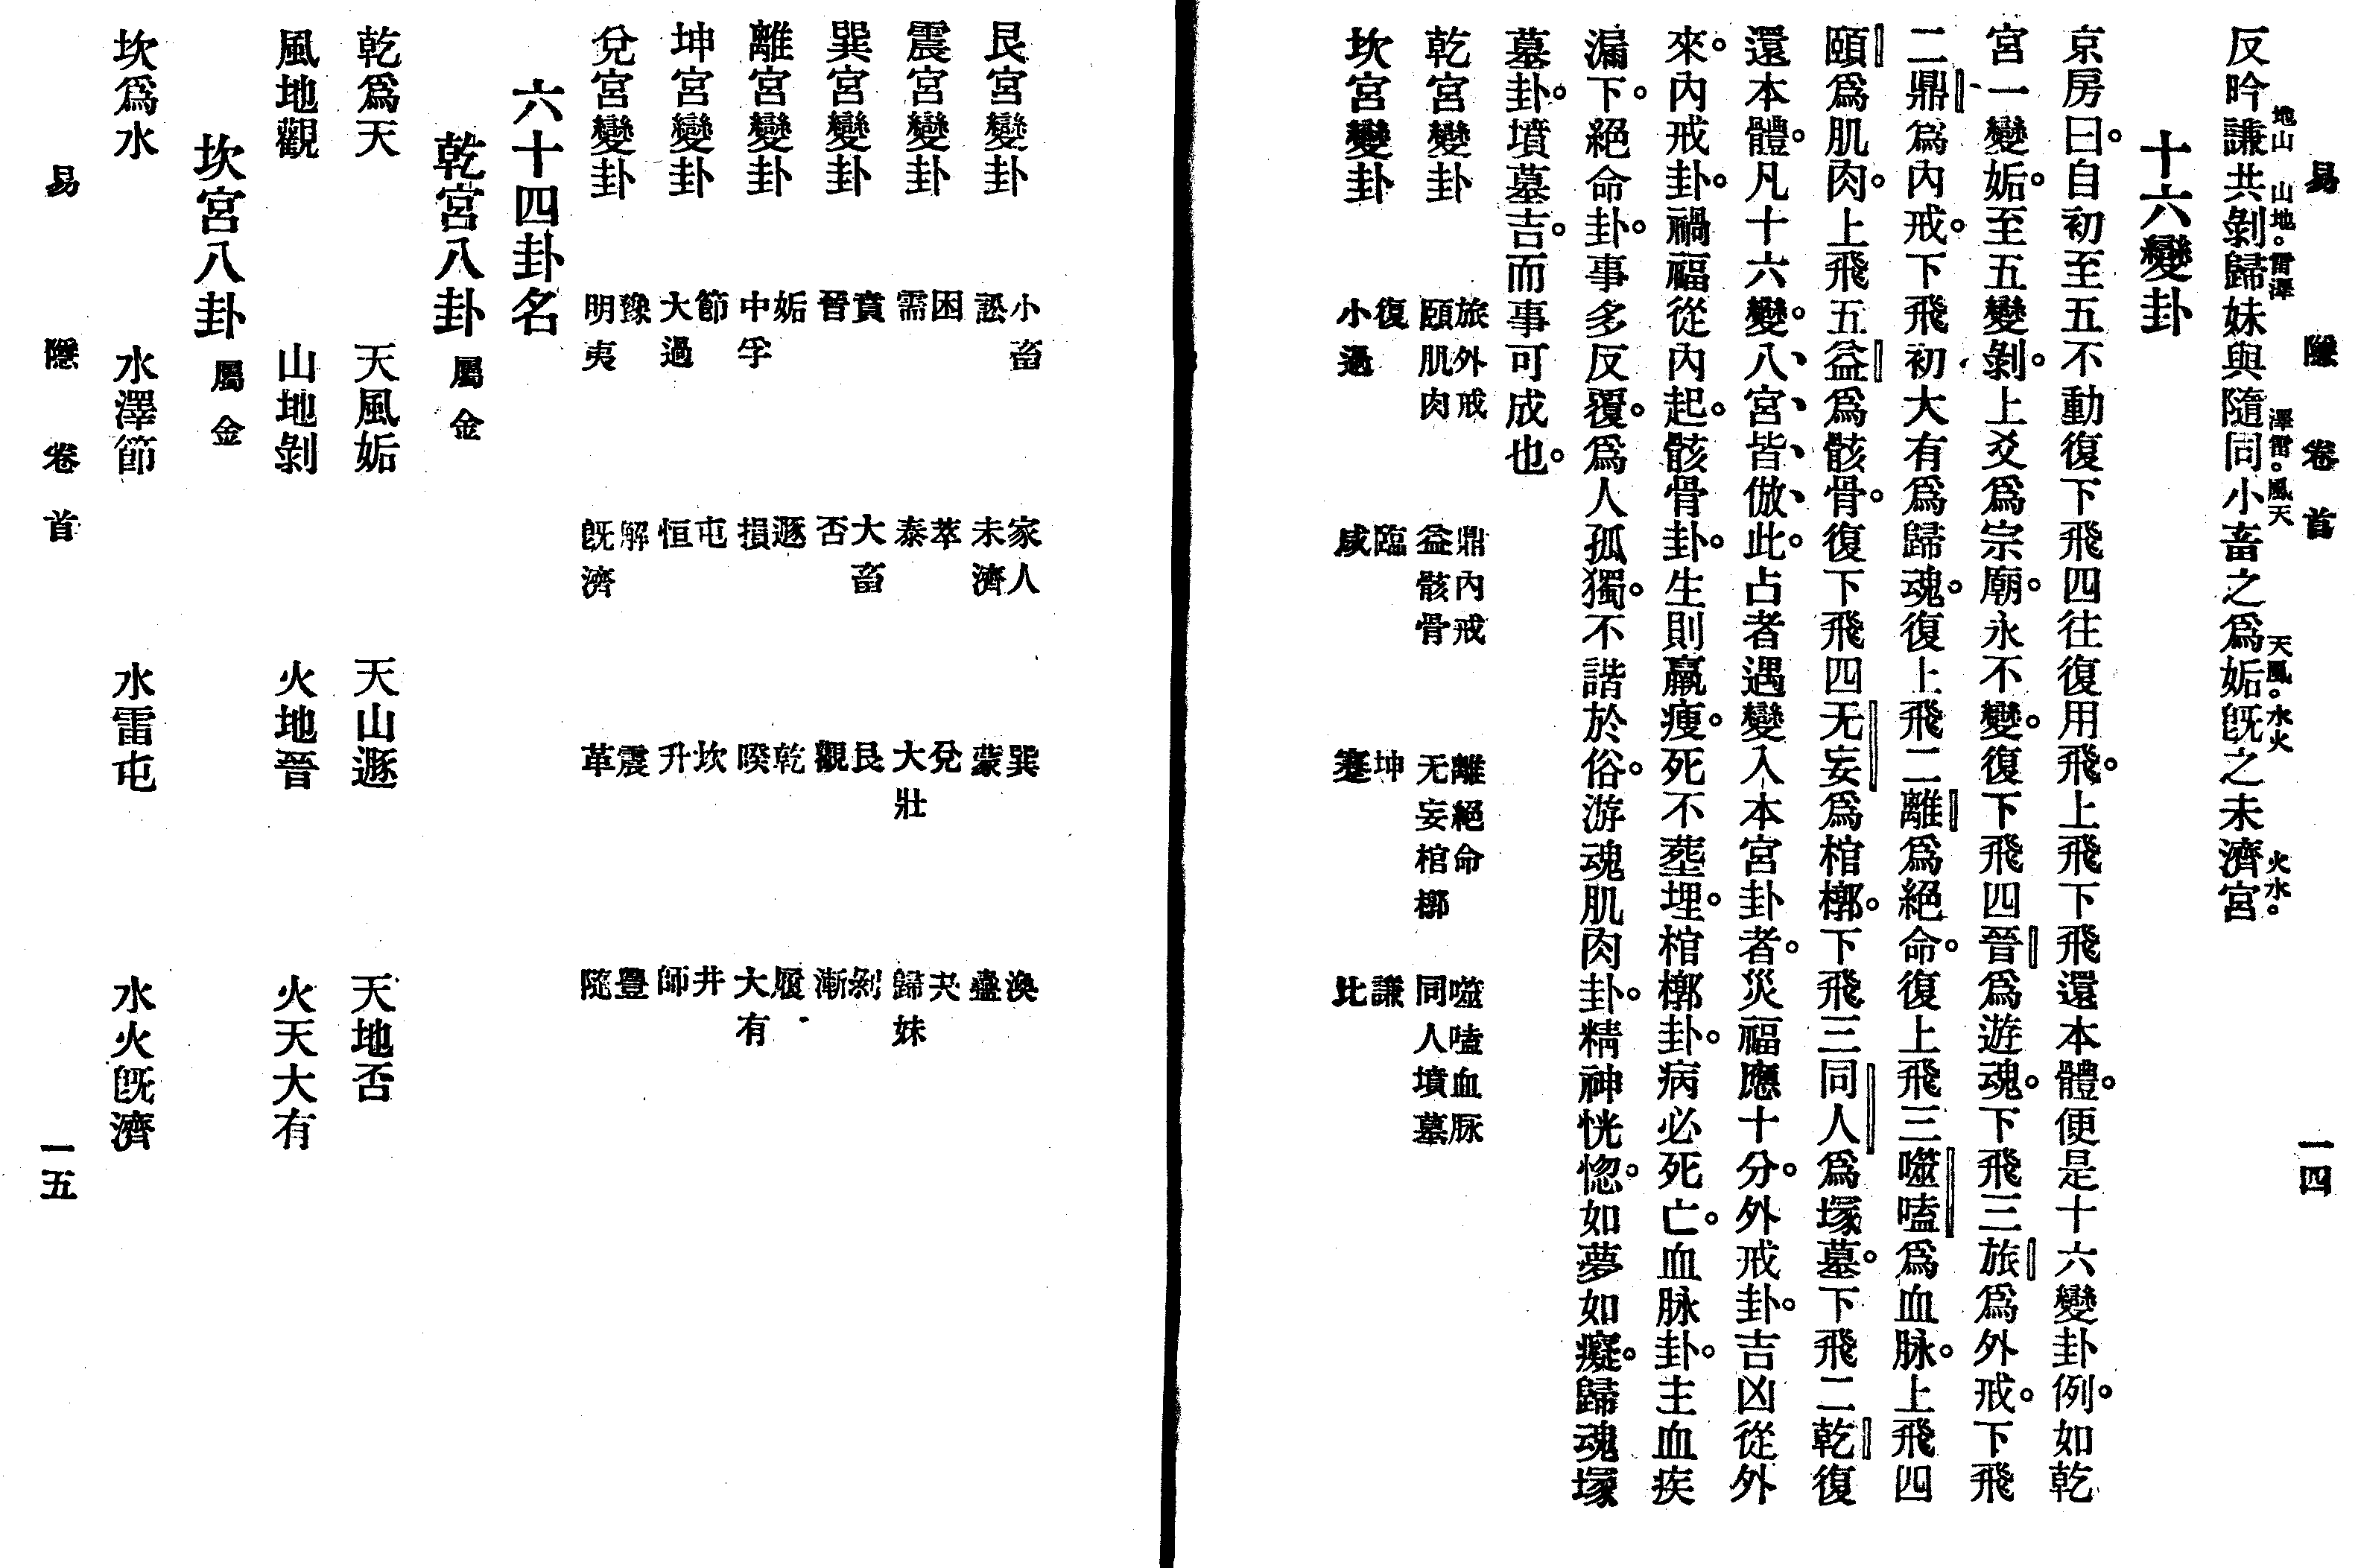 易 隱 卷首 一四
地山 山地。雷澤 澤雷。風天 天風。水火 火水。
反吟謙共剝歸妹與隨同小畜之爲姤旣之未濟宮
十六變卦
京房曰。自初至五不動復下飛四往復用飛。上飛下飛還本體。便是十六變卦例。如乾
宮一變姤。至五變剝。上爻爲宗廟。永不變。復下飛四晉爲遊魂。下飛三旅爲外戒。下飛
二鼎爲內戒。下飛初大有爲歸魂。復上飛二離爲絕命。復上飛三噬嗑爲血脉。上飛四
頤爲肌肉。上飛五益爲骸骨。復下飛四无妄爲棺槨。下飛三同人爲塚墓。下飛二乾復
還本體。凡十六變。八、宮、皆、倣、此。占者遇變入本宮卦者。災福應十分。外戒卦。吉凶從外
來。內戒卦。禍福從內起。骸骨卦。生則羸瘦。死不葬埋。棺槨卦。病必死亡。血脉卦。主血疾
漏下。絕命卦。事多反覆。爲人孤獨。不諧於俗。游魂肌肉卦。精神恍惚。如夢如癡。歸魂塚
墓卦。墳墓吉。而事可成也。
乾宮變卦 旅外戒 頤肌肉 鼎內戒 益骸骨 離絕命 无妄棺槨 噬嗑血脉 同人墳墓
坎宮變卦 復 小過 臨 咸 坤 蹇 謙 比
艮宮變卦 小畜 訟 家人 未濟 巽 蒙 渙 蠱
震宮變卦 困 需 萃 泰 兌 大壯 夬 歸妹
巽宮變卦 賁 晉 大畜 否 艮 觀 剝 漸
離宮變卦 姤 中孚 遯 損 乾 睽 履 大有
坤宮變卦 節 大過 屯 恒 坎 升 井 師
兌宮變卦 豫 明夷 解 旣濟 震 革 豐 隨
六十四卦名
乾宮八卦 屬金
乾爲天 天風姤 天山遯 天地否
風地觀 山地剝 火地晉 火天大有
坎宮八卦 屬金
坎爲水 水澤節 水雷屯 水火旣濟
易 隱 卷首 一五